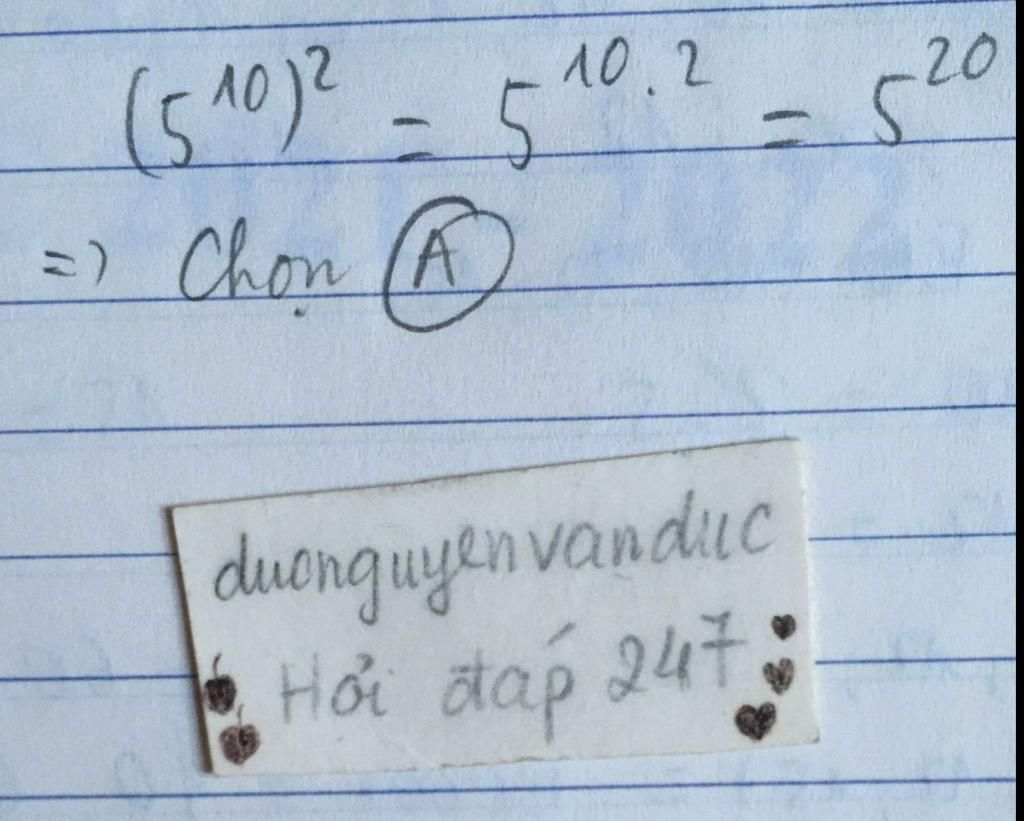 (5^10)^2 = 5^10.2 = 5^20
=> Chọn A
duonguyenvanduc
Hỏi đáp 247